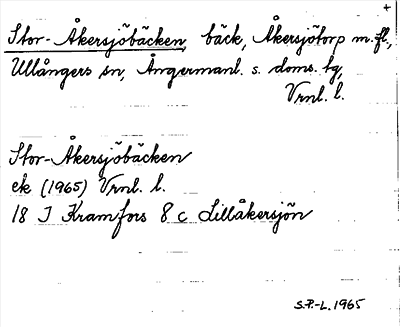 +
Stor-Åkersjöbäcken, bäck, Åkersjötorp m.fl.,
Ullångers sn, Ångermanl. s. doms. tg,
Vrnl. l.
Stor-Åkersjöbäcken
ek (1965) Vrnl. l.
18 J Kramfors 8 c Lillåkersjön
S.P.-L. 1965